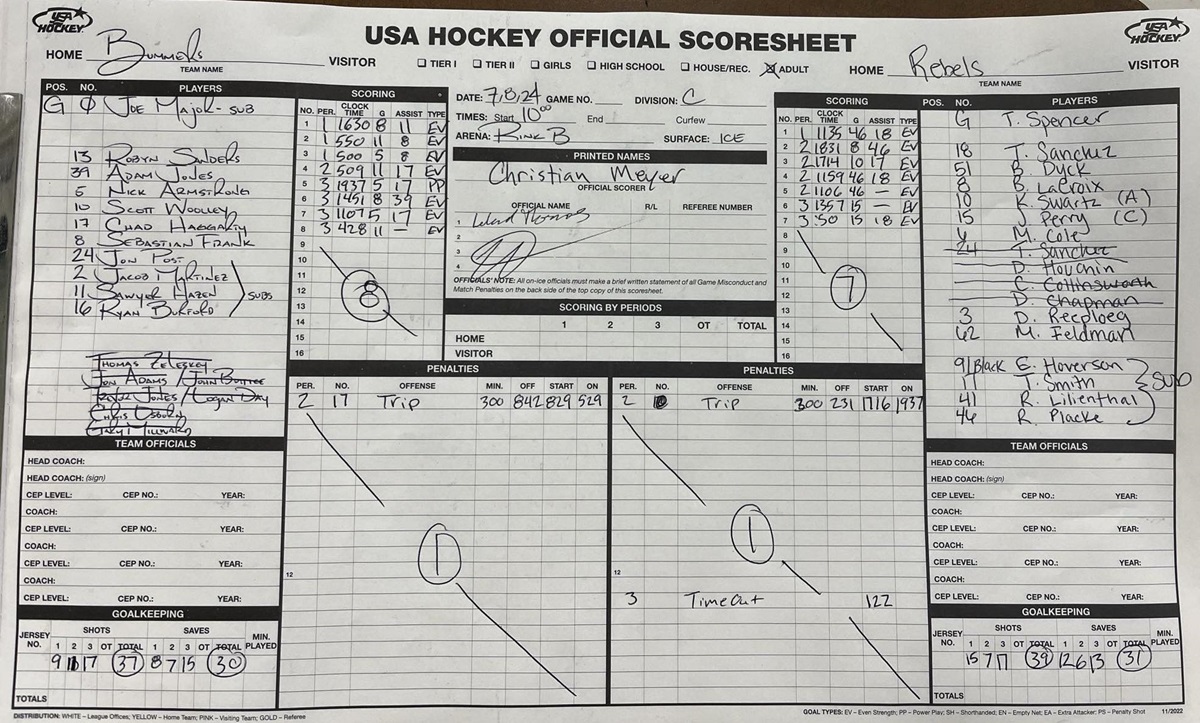 USA HOCKEY
USA HOCKEY OFFICIAL SCORESHEET
USA HOCKEY
HOME Bummers VISITOR
TEAM NAME
☐ TIER I ☐ TIER II ☐ GIRLS ☐ HIGH SCHOOL ☐ HOUSE/REC. ☒ ADULT
HOME Rebels VISITOR
TEAM NAME
POS. NO. PLAYERS
G Ø Joe Major - SUB
13 Robyn Sanders
39 Adam Jones
5 Nick Armstrong
10 Scott Woolley
17 Chad Haggarty
8 Sebastian Frank
24 Jon Post
2 Jacob Martinez
11 Sawyer Hazen
16 Ryan Burford
SUBS
Thomas Zeleskey
Jon Adams / John
Jones / Logan Day
Chris Osburn
Gary Millward
SCORING
NO. PER. CLOCK TIME G ASSIST TYPE
1 1 1630 8 11 EV
2 1 550 11 8 EV
3 1 500 5 8 EV
4 2 509 11 17 EV
5 3 1937 5 17 PP
6 3 1451 8 39 EV
7 3 1107 5 17 EV
8 3 428 11 — EV
9
10
11
12
13
14
15
16
8
DATE: 7,8,24 GAME NO. DIVISION: C
TIMES: Start 10:00 End Curfew
ARENA: Rink B SURFACE: ICE
PRINTED NAMES
Christian Meyer
OFFICIAL SCORER
OFFICIAL NAME R/L REFEREE NUMBER
1
2
3
4
OFFICIALS' NOTE: All on-ice officials must make a brief written statement of all Game Misconduct and
Match Penalties on the back side of the top copy of this scoresheet.
SCORING BY PERIODS
1 2 3 OT TOTAL
HOME
VISITOR
SCORING
NO. PER. CLOCK TIME G ASSIST TYPE
1 1 1135 46 18 EV
2 2 1831 8 46 EV
3 2 1714 10 17 EV
4 2 1159 46 18 EV
5 2 1106 46 — EV
6 3 1357 15 — EV
7 3 :50 15 18 EV
8
9
10
11
12
13
14
15
16
7
POS. NO. PLAYERS
G T. Spencer
18 T. Sanchez
51 B. Dyck
8 B. LaCroix
10 K. Swartz (A)
15 J. Perry (C)
4 M. Cole
24 T. Sanchez
D. Houchin
C. Collinsworth
D. Chapman
3 D. Recploeg
62 M. Feldman
91 Black E. Hoverson
11 T. Smith
41 R. Lilienthal
46 R. Placke
SUB
PENALTIES
PER. NO. OFFENSE MIN. OFF START ON
2 17 Trip 300 842 829 529
12
1
PENALTIES
PER. NO. OFFENSE MIN. OFF START ON
2 Trip 300 231 1716 1937
12
1
3 TimeOut 122
TEAM OFFICIALS
HEAD COACH:
HEAD COACH: (sign)
CEP LEVEL: CEP NO.: YEAR:
COACH:
CEP LEVEL: CEP NO.: YEAR:
COACH:
CEP LEVEL: CEP NO.: YEAR:
COACH:
CEP LEVEL: CEP NO.: YEAR:
GOALKEEPING
JERSEY NO. SHOTS SAVES MIN. PLAYED
1 2 3 OT TOTAL 1 2 3 OT TOTAL
9 11 17 37 8 7 15 30
TOTALS
TEAM OFFICIALS
HEAD COACH:
HEAD COACH: (sign)
CEP LEVEL: CEP NO.: YEAR:
COACH:
CEP LEVEL: CEP NO.: YEAR:
COACH:
CEP LEVEL: CEP NO.: YEAR:
COACH:
CEP LEVEL: CEP NO.: YEAR:
GOALKEEPING
JERSEY NO. SHOTS SAVES MIN. PLAYED
1 2 3 OT TOTAL 1 2 3 OT TOTAL
15 7 17 39 12 6 13 31
TOTALS
DISTRIBUTION: WHITE – League Offices; YELLOW – Home Team; PINK – Visiting Team; GOLD – Referee
GOAL TYPES: EV – Even Strength; PP – Power Play; SH – Shorthanded; EN – Empty Net; EA – Extra Attacker; PS – Penalty Shot 11/2022